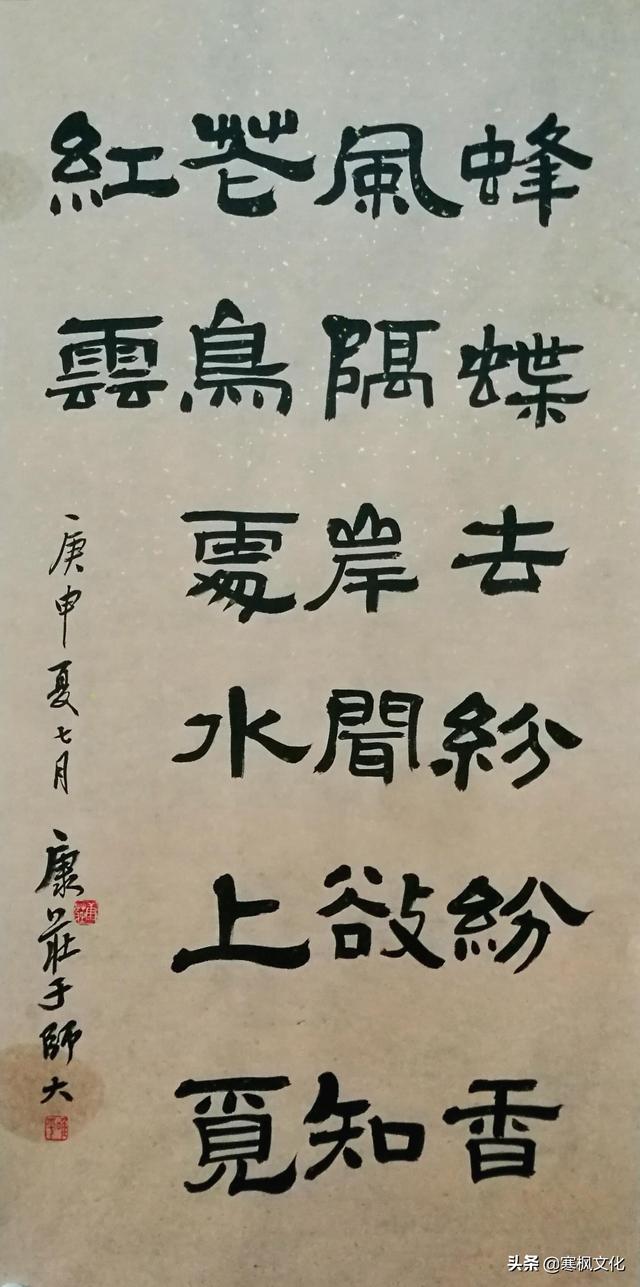 蜂蝶去紛紛香
風隔岸聞欲知
花鳥處水上覓
紅雲
庚申夏七月 康莊于師大
头条 @寒枫文化